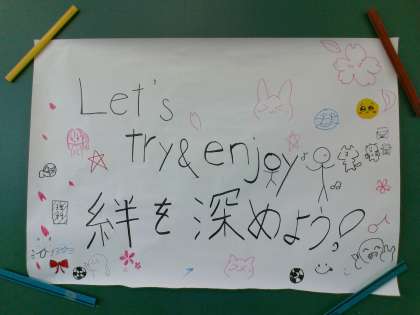 Let's
try & enjoy♪
絆を深めよう